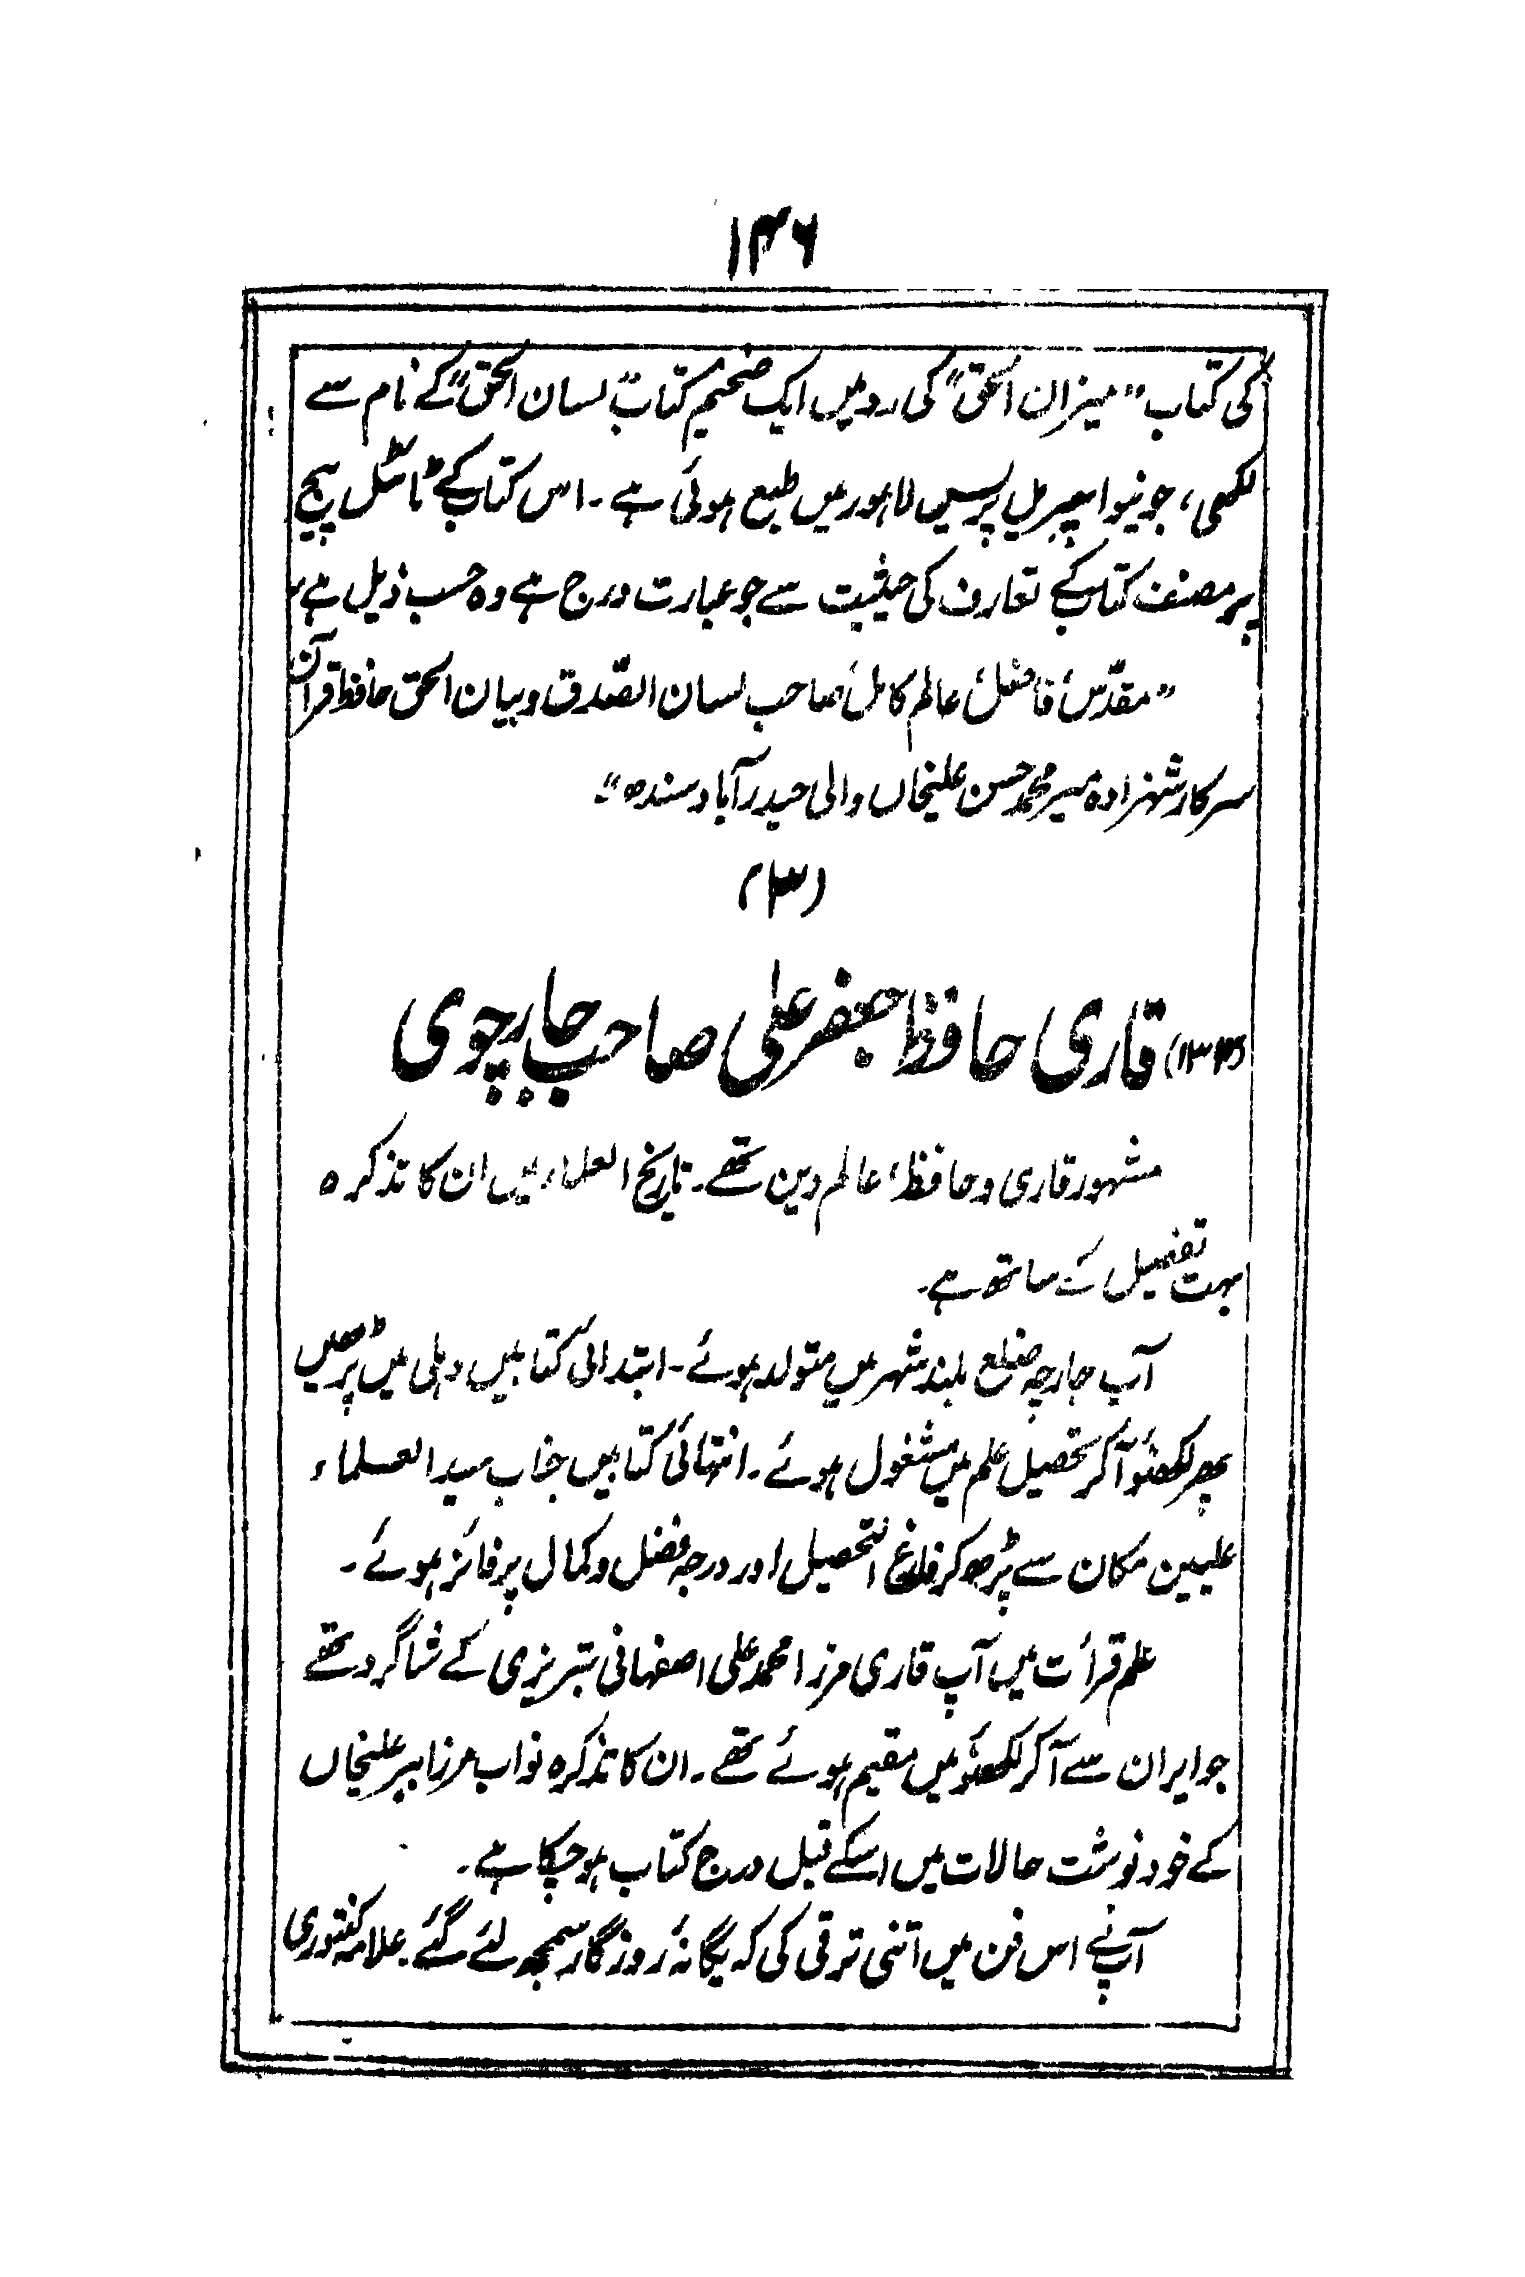 ۱۴۶
کی کتاب "میزان الحق" کی رد میں ایک ضخیم کتاب "لسان الحق" کے نام سے
لکھی، جو نیو امپریل پریس لاہور میں طبع ہوئی ہے۔ اس کتاب کے ٹائٹل پیج
پر مصنف کتاب کے تعارف کی حیثیت سے جو عبارت درج ہے وہ حسب ذیل ہے
"مقدّس، فاضل، عالم کامل، صاحب لسان الصّدق و بیان الحق حافظ قرآن
سرکار شہزادہ میر محمد حسن علیخاں والی حیدرآباد سندھ"۔
(۳)
قاری حافظ جعفر علی صاحب جارچوی
مشہور قاری و حافظ، عالم دین تھے۔ تاریخ العلماء میں ان کا تذکرہ
بہت تفصیل کے ساتھ ہے۔
آپ جارچہ ضلع بلند شہر میں متولد ہوئے۔ ابتدائی کتابیں دہلی میں پڑھیں
پھر لکھنؤ آکر تحصیل علم میں مشغول ہوئے۔ انتہائی کتابیں جناب سید العلماء
علیین مکان سے پڑھ کر فارغ التحصیل اور درجہ فضل و کمال پر فائز ہوئے۔
علم قرأت میں آپ قاری مرزا محمد علی اصفہانی تبریزی کے شاگرد تھے
جو ایران سے آکر لکھنؤ میں مقیم ہوئے تھے۔ ان کا تذکرہ نواب مرزا ببر علیخاں
کے خود نوشت حالات میں اسکے قبل درج کتاب ہو چکا ہے۔
آپ نے اس فن میں اتنی ترقی کی کہ یگانۂ روزگار سمجھ لئے گئے۔ علامہ کنتوری